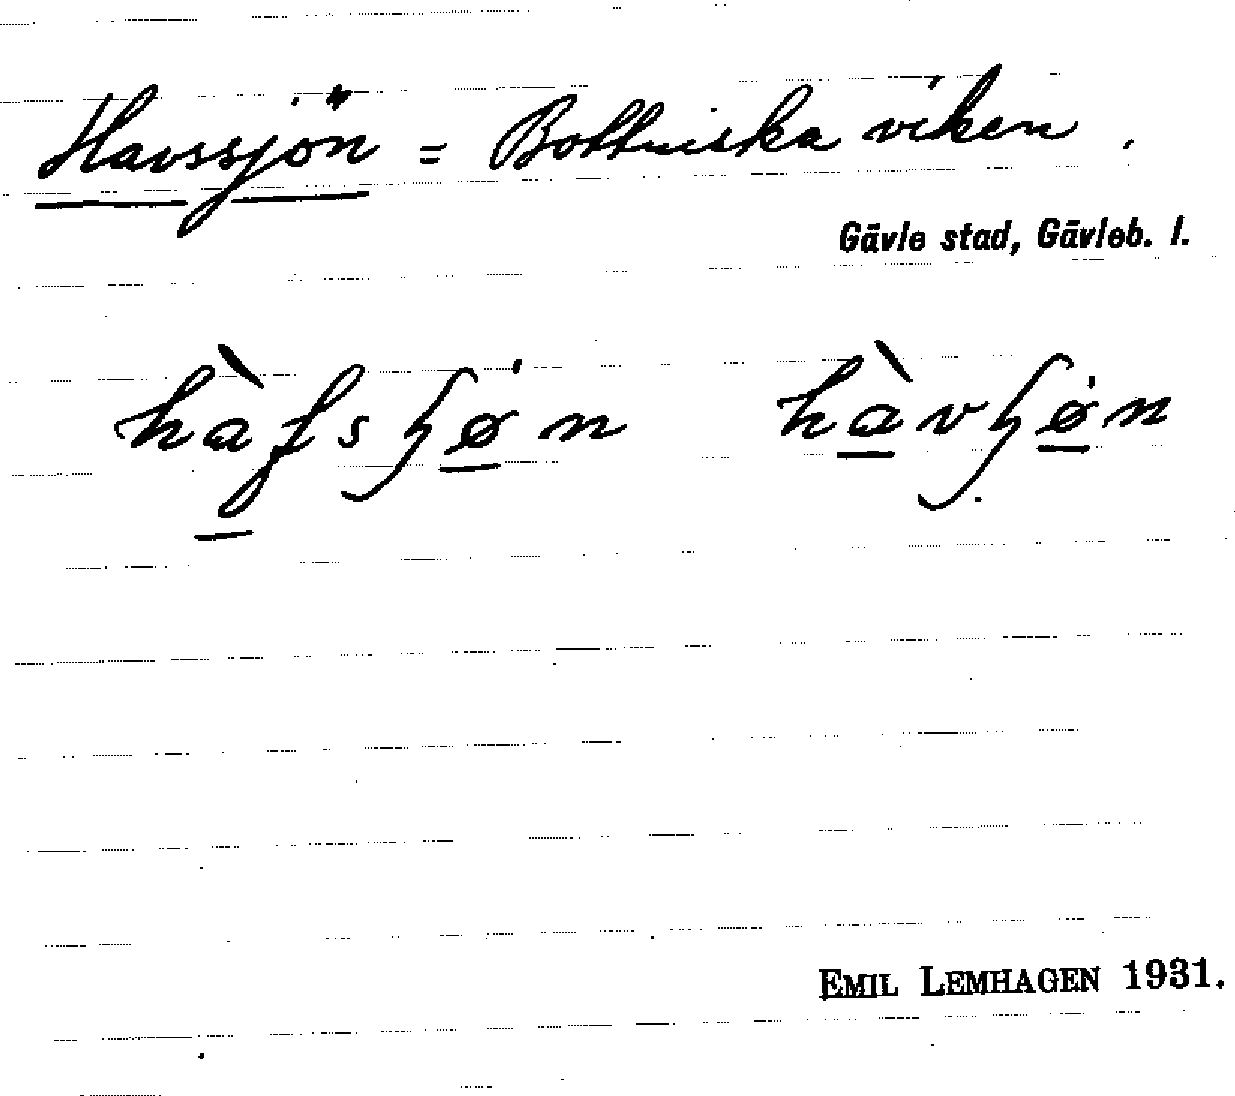 Havssjön = Bottniska viken.
Gävle stad, Gävleb. l.
hàfsꞩø̀n hàvꞩø̀n.
EMIL LEMHAGEN 1931.